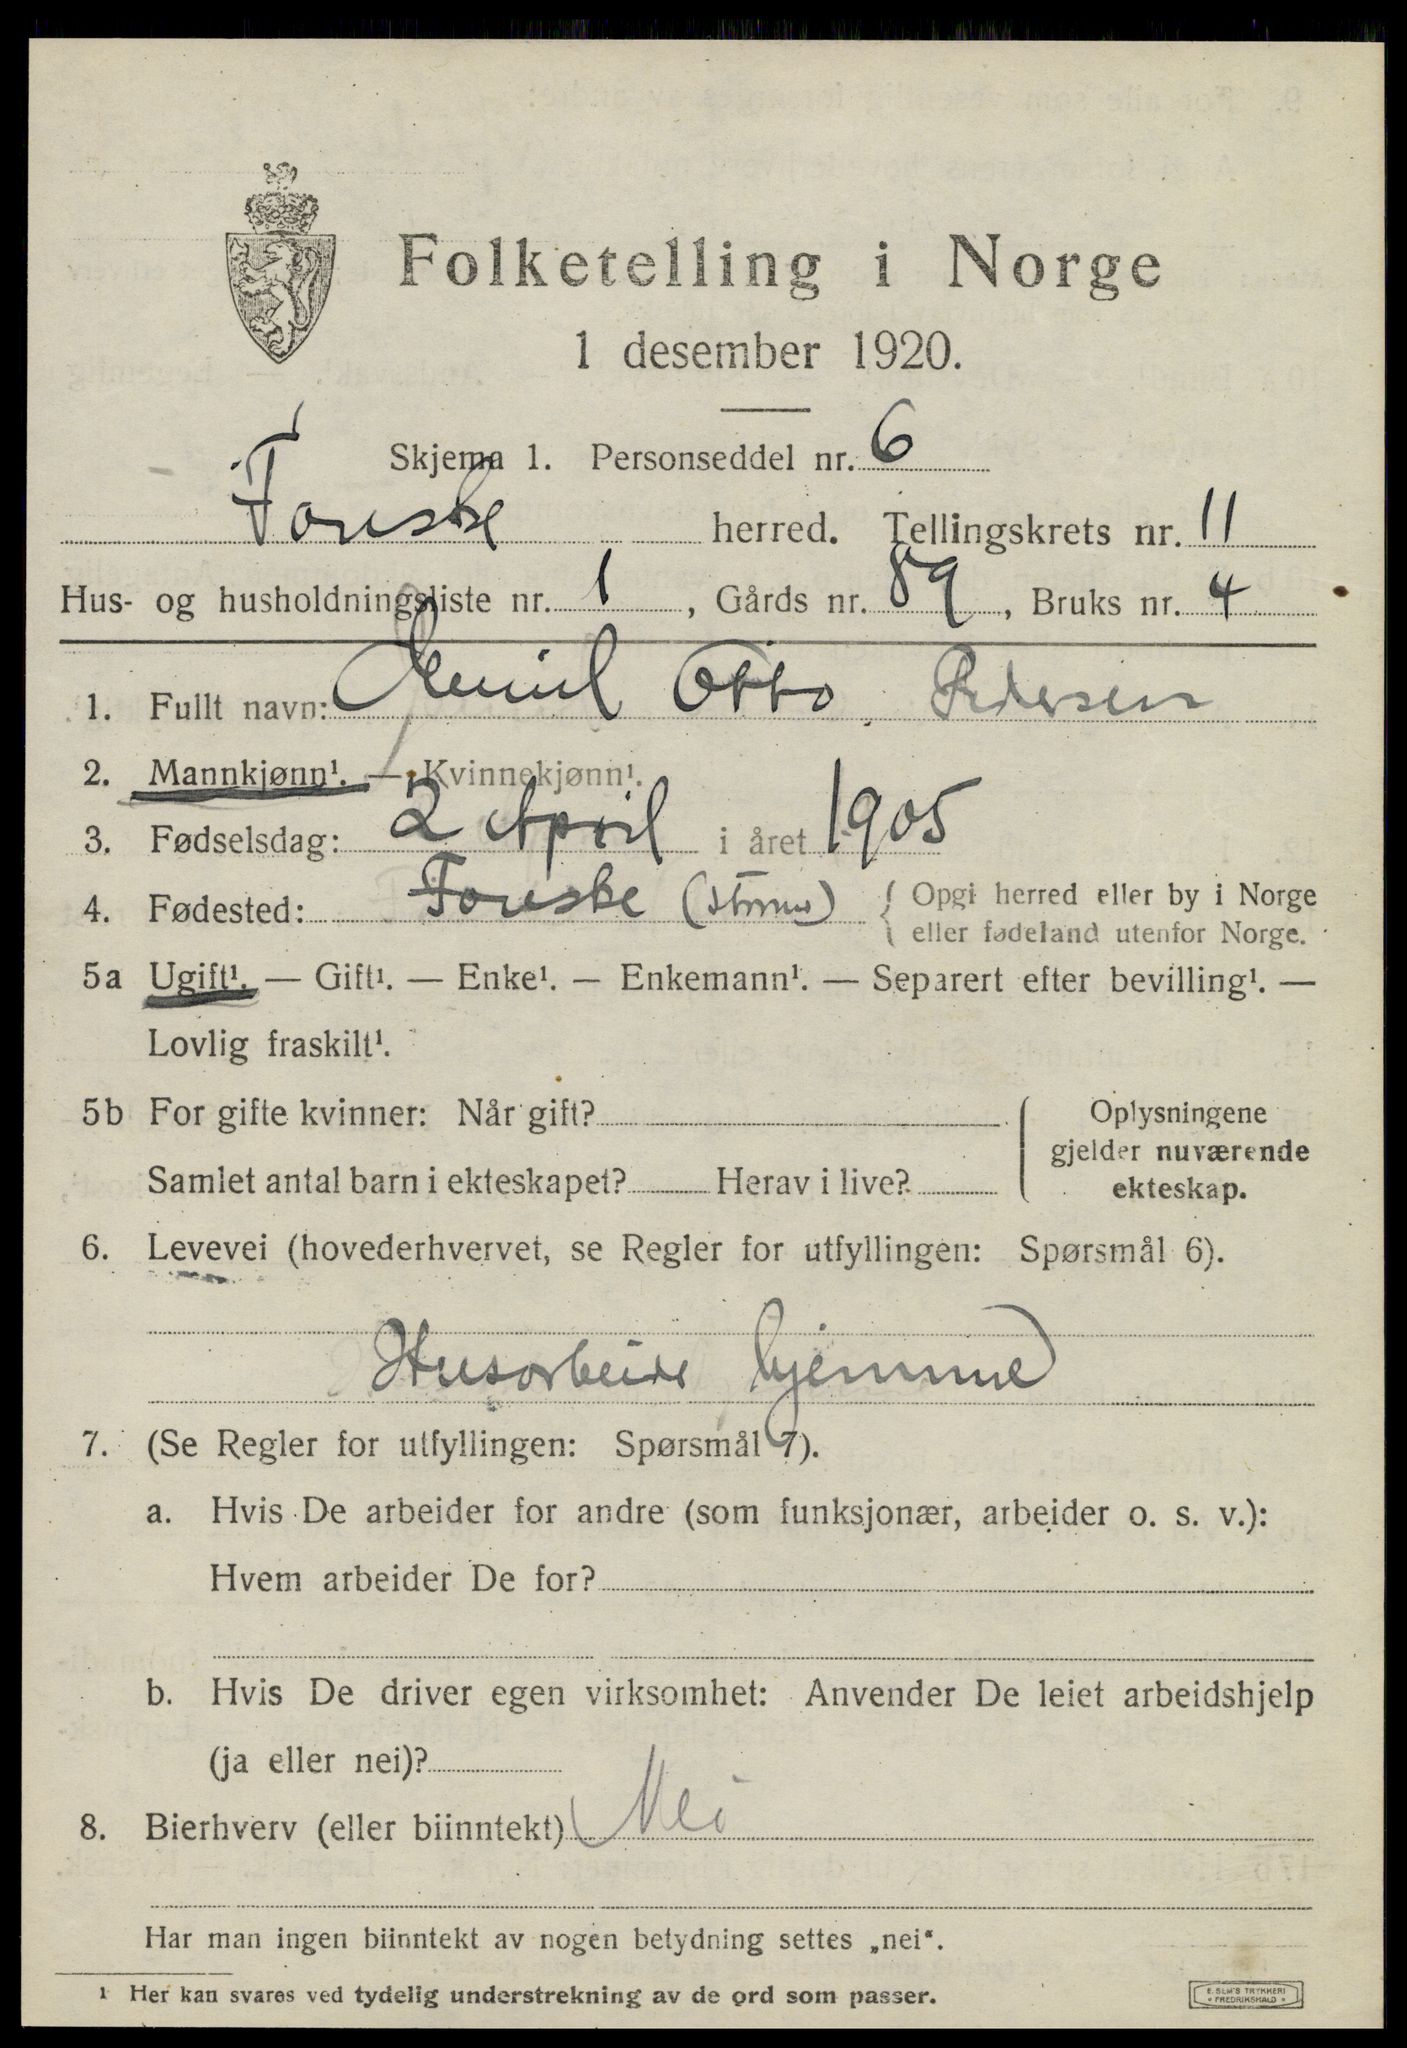 Folketelling i Norge
1 desember 1920.
Skjema 1. Personseddel nr. 6
Fauske herred. Tellingskrets nr. 11
Hus- og husholdningsliste nr. 1, Gårds nr. 89, Bruks nr. 4
1. Fullt navn: Emil Otto Pedersen
2. Mannkjønn¹. — Kvinnekjønn¹.
3. Fødselsdag: 2 April i året 1905
4. Fødested: Fauske { Opgi herred eller by i Norge
eller fødeland utenfor Norge.
5a Ugift¹. — Gift¹. — Enke¹. — Enkemann¹. — Separert efter bevilling¹. —
Lovlig fraskilt¹.
5b For gifte kvinner: Når gift? { Oplysningene
gjelder nuværende
Samlet antal barn i ekteskapet? Herav i live? ekteskap.
6. Levevei (hovederhvervet, se Regler for utfyllingen: Spørsmål 6).
Husarbeide hjemme
7. (Se Regler for utfyllingen: Spørsmål 7).
a. Hvis De arbeider for andre (som funksjonær, arbeider o. s. v.):
Hvem arbeider De for?
b. Hvis De driver egen virksomhet: Anvender De leiet arbeidshjelp
(ja eller nei)?
8. Bierhverv (eller biinntekt) Nei
Har man ingen biinntekt av nogen betydning settes „nei“.
¹ Her kan svares ved tydelig understrekning av de ord som passer.
E. SEM'S TRYKKERI
• FREDRIKSHALD •